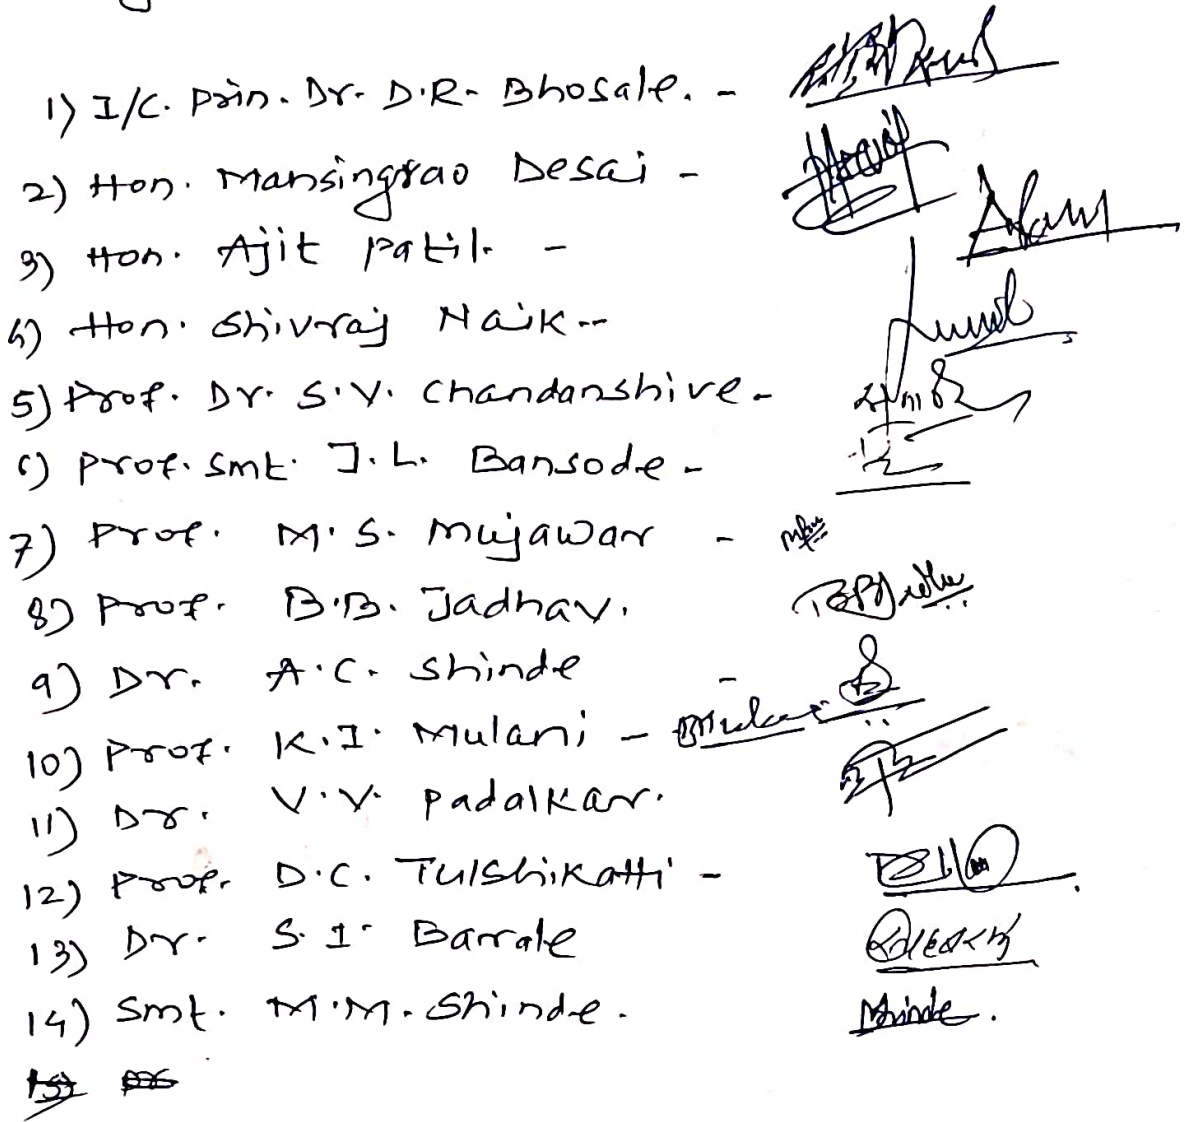 1) I/C. Prin. Dr. D.R. Bhosale. -
2) Hon. Mansingrao Desai -
3) Hon. Ajit Patil. -
4) Hon. Shivraj Naik --
5) Prof. Dr. S.V. Chandanshive -
6) Prof. Smt. J.L. Bansode -
7) Prof. M.S. Mujawar -
8) Prof. B.B. Jadhav.
9) Dr. A.C. Shinde -
10) Prof. K.I. Mulani -
11) Dr. V.V. Padalkar.
12) Prof. D.C. Tulshikatti -
13) Dr. S.I. Barale
14) Smt. M.M. Shinde. Mshinde.